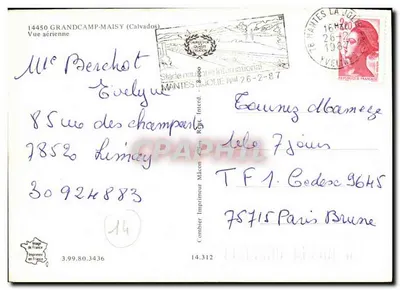 14450 GRANDCAMP-MAISY (Calvados)
Vue aérienne
Mlle Berchot
Evelyne
85 rue des champarts
78520 Limay
30924883
14
3.99.80.3436
14.312
Combier Imprimeur Mâcon
MANTES LA JOLIE
26-2-87
MANTES LA JOLIE
2,20
Tournez Manège
Télé 7 jours
TF1. Cedex 9645
75715 Paris Brune
CPHARTE